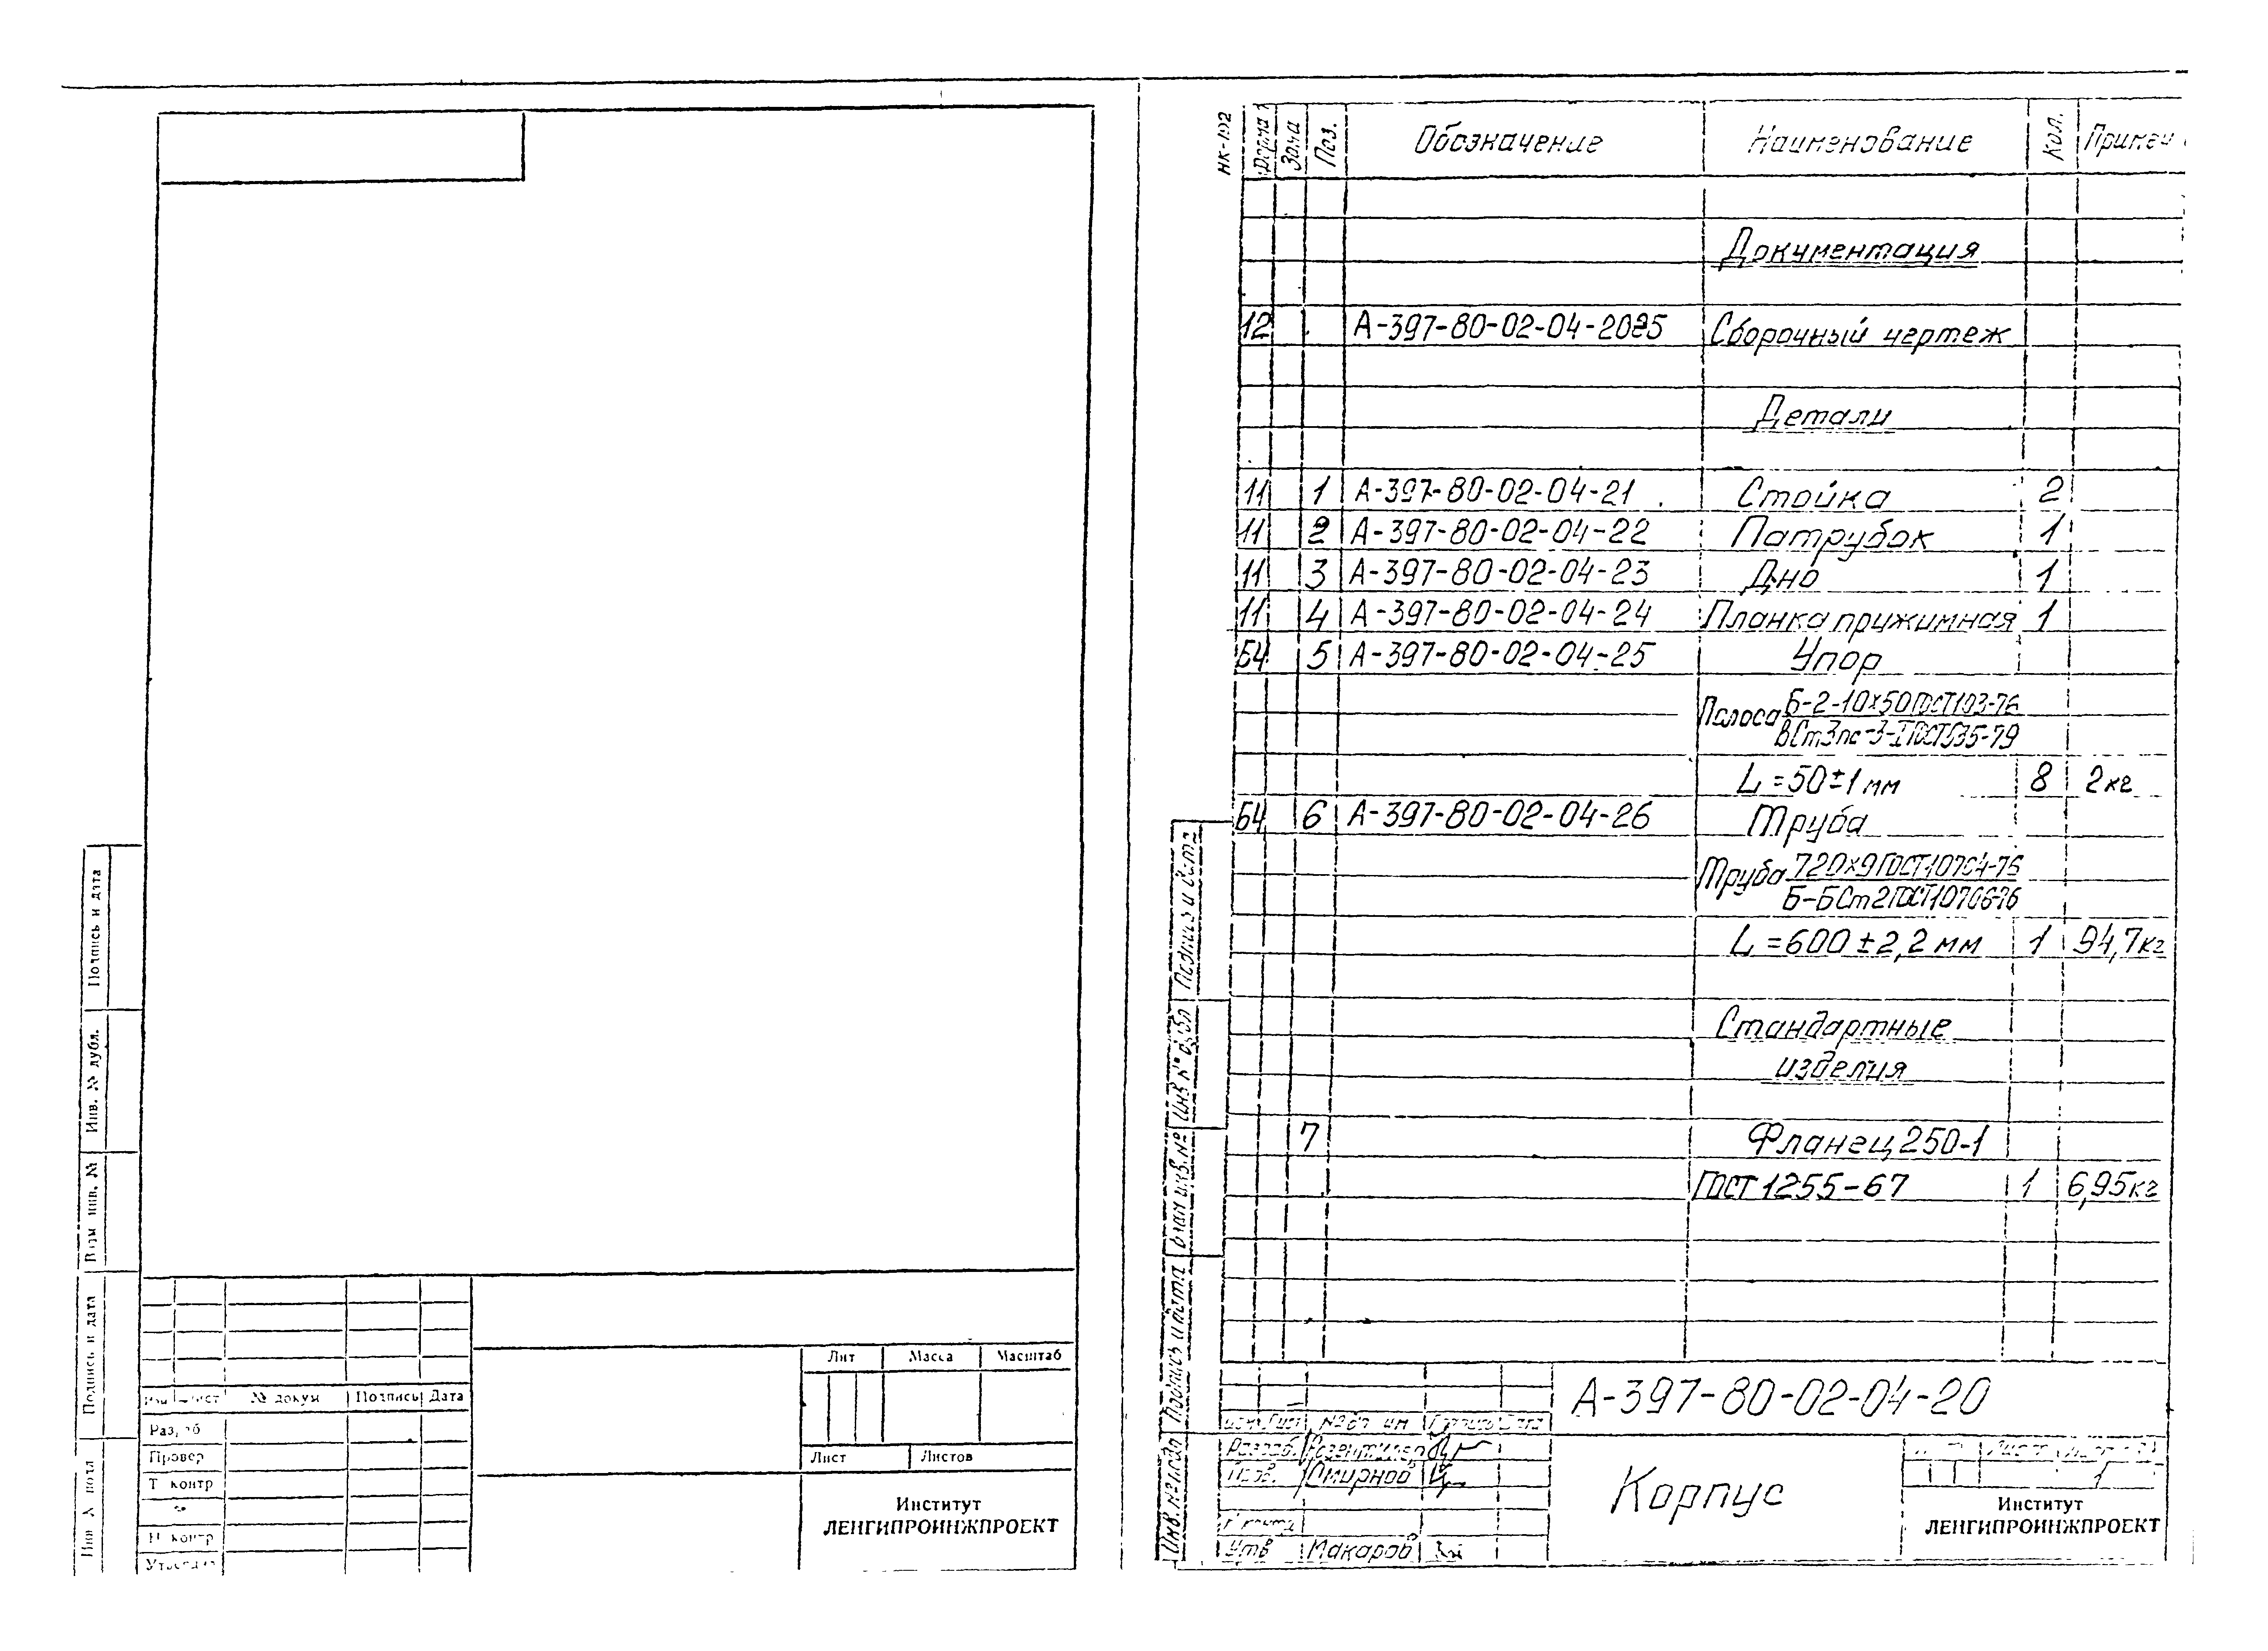 Подпись и дата
Инв. № дубл.
Взам инв. №
Подпись и дата
Лит Масса Масштаб
№ докум Подпись Дата
Провер
Т контр
Н контр
Лист Листов
Институт
ЛЕНГИПРОИНЖПРОЕКТ
НК-192
Зона Поз. Обозначение Наименование Кол.
Документация
12 Сборочный чертеж
Детали
11 1 А-397-80-02-04-21 Стойка 2
11 2 А-397-80-02-04-22 Патрубок 1
11 3 А-397-80-02-04-23 Дно 1
11 4 А-397-80-02-04-24 Планка прижимная 1
Б4 5 А-397-80-02-04-25 Упор
Полоса Б-2-10х50 ГОСТ 103-76
ВСт3пс-3-I ГОСТ 535-79
L=50±1 мм 8 2 кг
Б4 6 А-397-80-02-04-26 Труба
Труба 720х9 ГОСТ 10704-76
Б-БСт2 ГОСТ 10706-76
L=600±2,2 мм 1 94,7 кг
Стандартные
изделия
7 Фланец 250-1
ГОСТ 1255-67 1 6,95 кг
Подпись и дата
Инв № дубл
Взам инв. №
Подпись и дата
Инв. № подл
А-397-80-02-04-20
Разраб.
Смирнов
Утв Макаров
Корпус
1
Институт
ЛЕНГИПРОИНЖПРОЕКТ